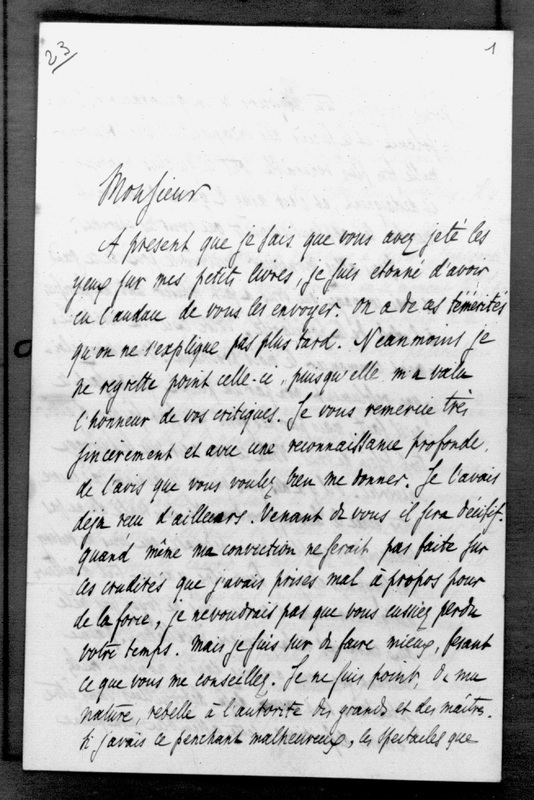 23
1
Monsieur
A présent que je sais que vous avez jeté les
yeux sur mes petits livres, je suis étonné d'avoir
eu l'audace de vous les envoyer. On a de ces témérités
qu'on ne s'explique pas plus tard. Neanmoins je
ne regrette point celle-ci, puisqu'elle m'a valu
l'honneur de vos critiques. Je vous remercie très
sincèrement et avec une reconnaissance profonde,
de l'avis que vous voulez bien me donner. Je l'avais
déjà reçu d'ailleurs. Venant de vous il sera décisif.
quand même ma conviction ne serait pas faite sur
ces crudités que j'avais prises mal à propos pour
de la force, je ne voudrais pas que vous eussiez perdu
votre temps. Mais je suis sur de faire mieux, faisant
ce que vous me conseillez. Je ne suis point, de ma
nature, rebelle à l'autorité des grands et des maîtres.
Si j'avais ce penchant malheureux, les spectacles que